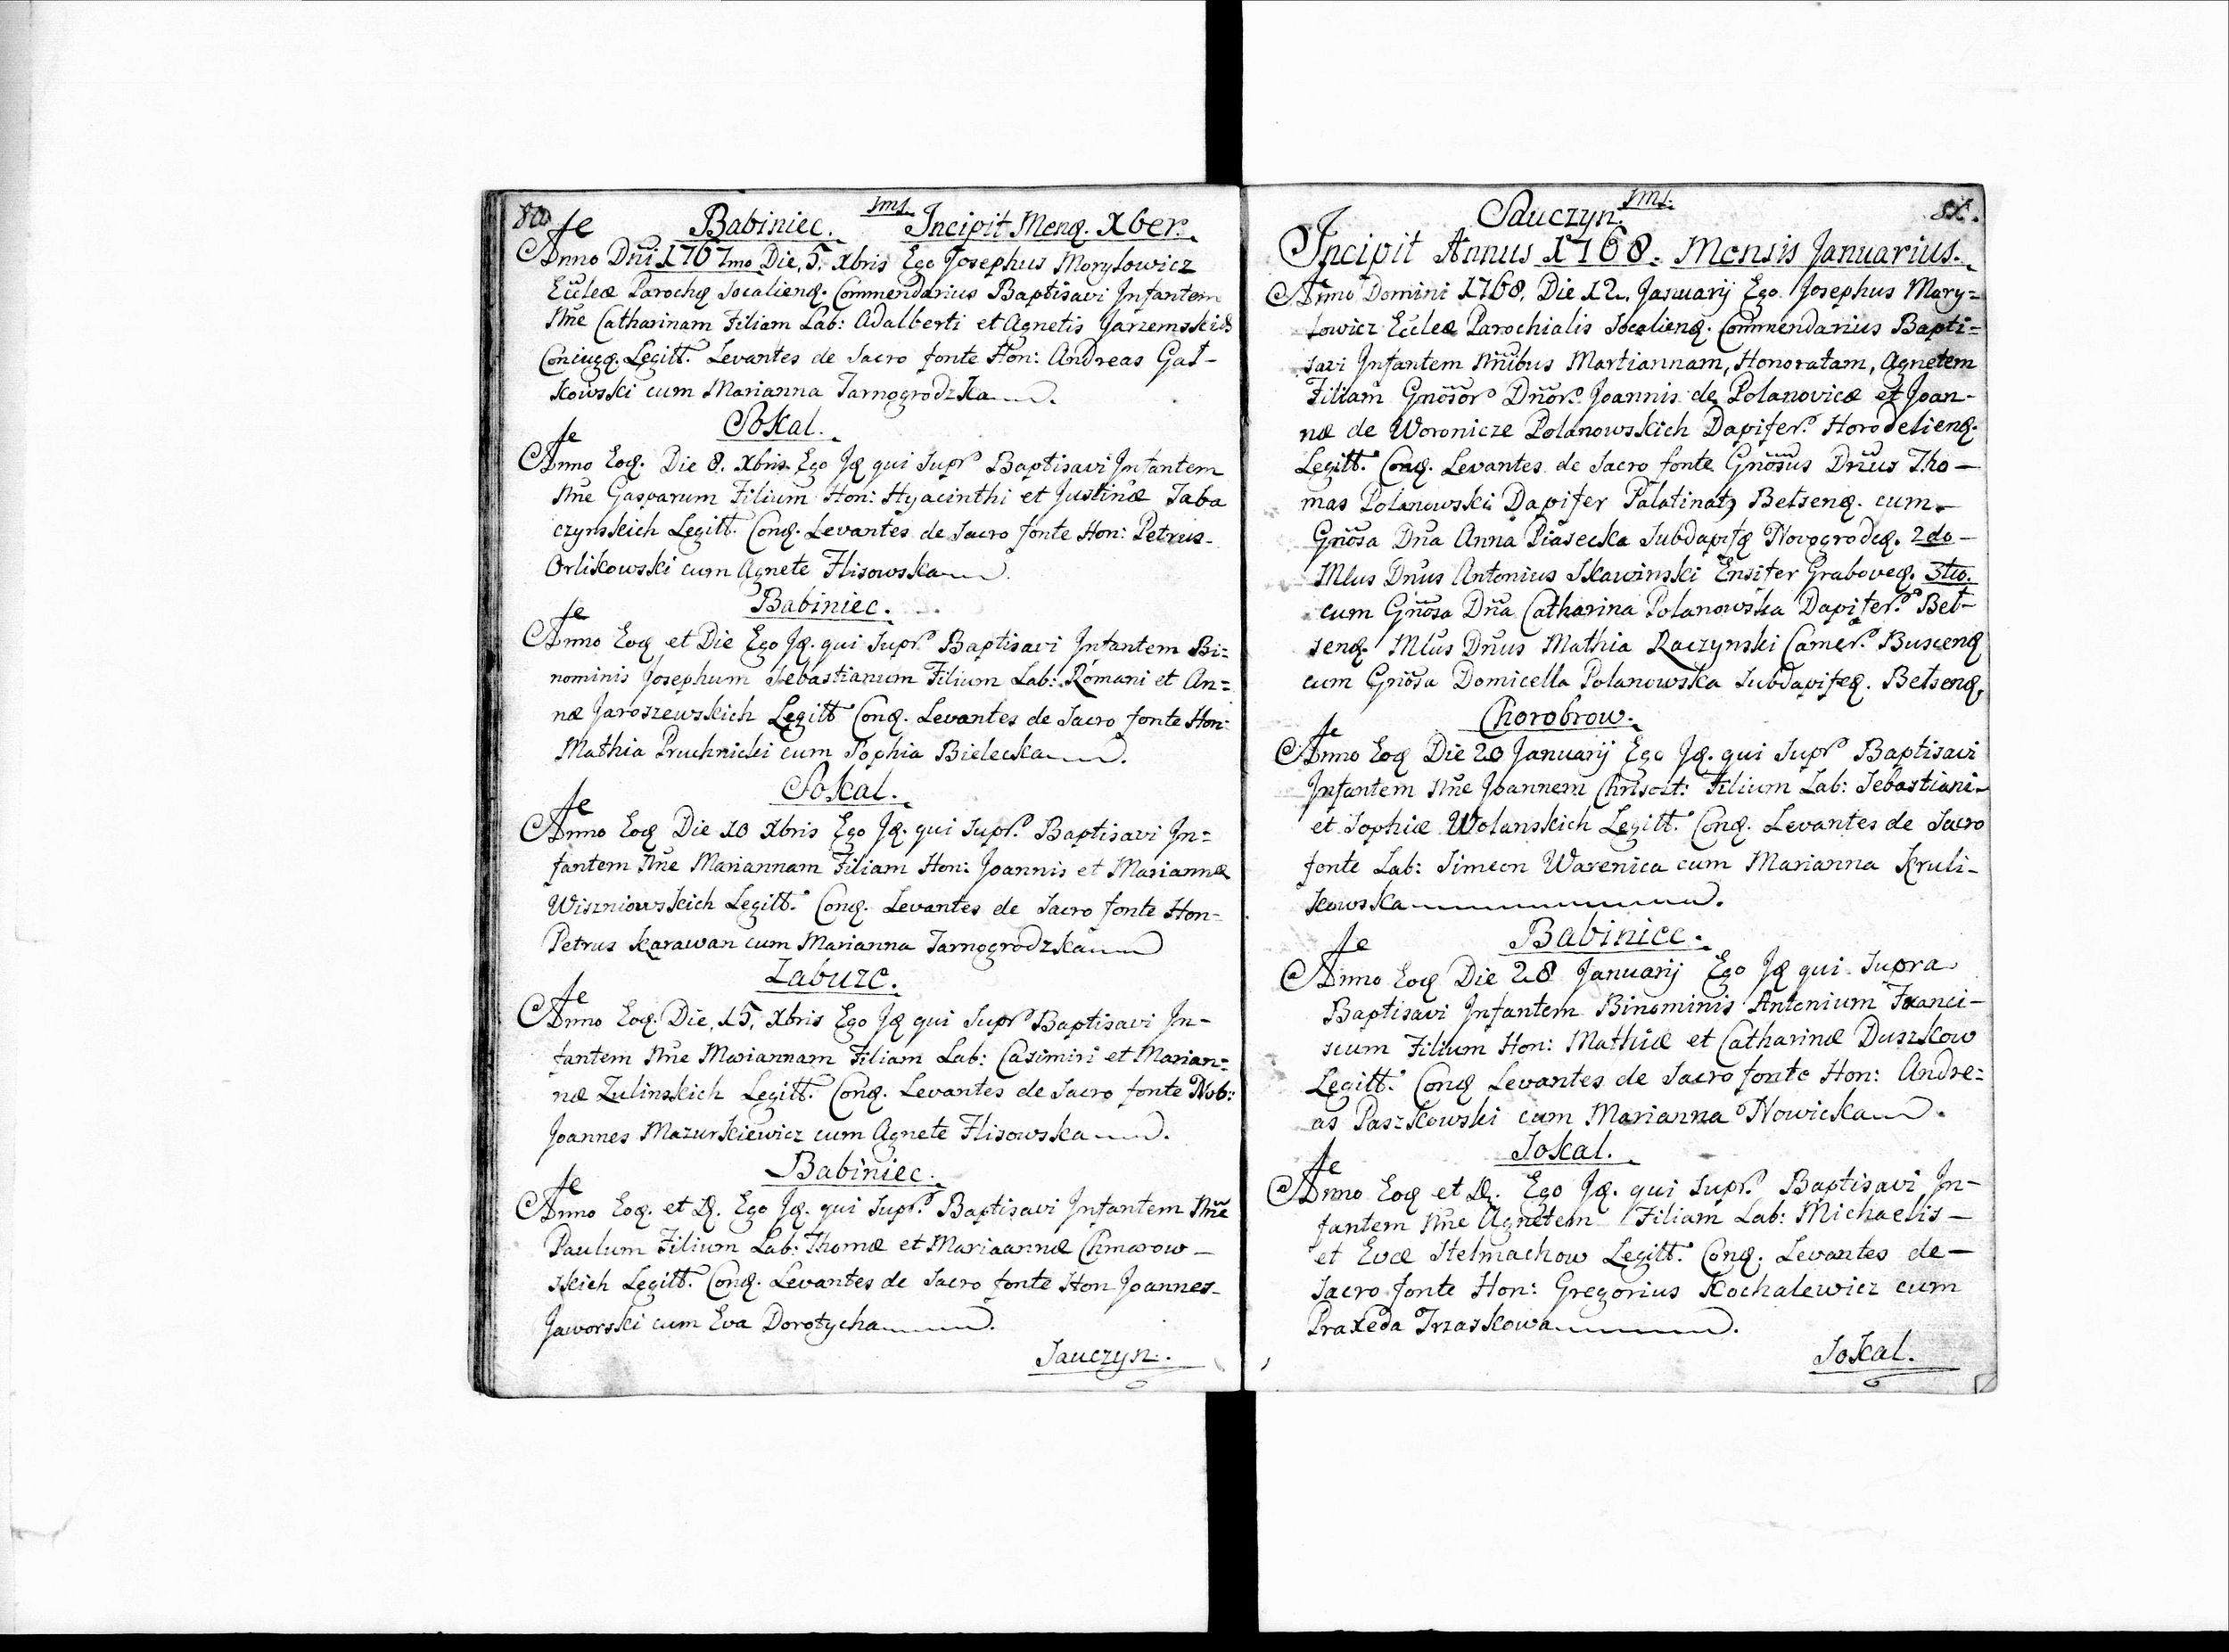 80 fe Babiniec. 1ms. Incipit Menq. Xber.
Anno Dni 1767mo Die, 5, Xbris Ego Josephus Morylowicz
Eccleæ Parochq Socalienq. Commendarius Baptisavi Infantem
Nne Catharinam Filiam Lab: Adalberti et Agnetis Jarzemskich
Coniugq. Legitt. Levantes de Sacro fonte Hon: Andreas Gał-
kowski cum Marianna Tarnogrodzka
fe Sokal.
Anno Eoq. Die 8. Xbris. Ego Jq qui Supr Baptisavi Infantem
Nne Gasparum Filium Hon: Hyacinthi et Justinæ Taba
czynskich Legitt. Conq. Levantes de Sacro fonte Hon: Petrus-
Orlikowski cum Agnete Flisowska
fe Babiniec.
Anno Eoq et Die Ego Jq. qui Supr. Baptisavi Infantem Bi=
nominis Josephum Sebastianum Filium Lab: Romani et An=
næ Jaroszewskich Legitt Conq. Levantes de Sacro fonte Hon:
Mathia Pruchnicki cum Sophia Bielecka
fe Sokal.
Anno Eoq Die 10 Xbris Ego Jq. qui Supr. Baptisavi In=
fantem Nne Mariannam Filiam Hon: Joannis et Mariannæ
Wiszniowskich Legitt. Conq. Levantes de Sacro fonte Hon=
Petrus Karawan cum Marianna Tarnogrodzka
fe Zabuze.
Anno Eoq. Die, 15, Xbris Ego Jq qui Supr Baptisavi In-
fantem Nne Mariannam Filiam Lab: Casimiri et Marian=
næ Zulinskich Legitt. Conq. Levantes de Sacro fonte Nob:
Joannes Mazurkiewicz cum Agnete Flisowska
fe Babiniec.
Anno Eoq. et D. Ego Jq. qui Supr. Baptisavi Infantem Nne
Paulum Filium Lab: Thomæ et Mariaannæ Chmarow-
skich Legitt. Conq. Levantes de Sacro fonte Hon Joannes-
Jaworski cum Eva Dorotycha
Sauczyn.
Sauczyn. 1ms. 81.
Incipit Annus 1768. Mensis Januarius.
Anno Domini 1768. Die 12. Januarij Ego. Josephus Mary=
lowicz Eccleæ Parochialis Socalienq. Commendarius Bapti=
savi Infantem Nnibus Martiannam, Honoratam, Agnetem
Filiam Gnosor Dnor. Joannis de Polanovicæ et Joan-
næ de Woronicze Polanowskich Dapifer. Horodelienq.
Legitt. Conq. Levantes de Sacro fonte Gnosus Dnus Tho-
mas Polanowski Dapifer Palatinatq Betsenq. cum-
Gnosa Dna Anna Piasecka Subdapifq Novogrodeq. 2do-
Mlus Dnus Antonius Skawinski Ensifer Graboveq. 3tio.
cum Gnosa Dna Catharina Polanowska Dapifer. Bet-
senq. Mlus Dnus Mathia Raczynski Camer. Buscenq
cum Gnosa Domicella Polanowska Subdapifeq. Betsenq,
fe Chorobrow.
Anno Eoq Die 20 Januarij Ego Jq. qui Supr Baptisavi
Infantem Nne Joannem Chrisost: Filium Lab: Sebastiani-
et Sophiæ Wolanskich Legitt. Conq. Levantes de Sacro
fonte Lab: Simeon Warenica cum Marianna Kruli-
kowska
fe Babiniec.
Anno Eoq Die 28 Januarij Ego Jq qui Supra
Baptisavi Infantem Binominis Antonium Franci-
scum Filium Hon: Mathiæ et Catharinæ Duszkow
Legitt. Conq Levantes de Sacro fonte Hon: Andre=
as Paszkowski cum Marianna Nowicka
fe Sokal.
Anno Eoq et D. Ego Jq. qui Supr. Baptisavi In-
fantem Nne Agnetem Filiam Lab: Michaelis-
et Evæ Stelmachow Legitt. Conq. Levantes de-
Sacro fonte Hon: Gregorius Kochalewicz cum
Praxeda Trzaskowa
Sokal.